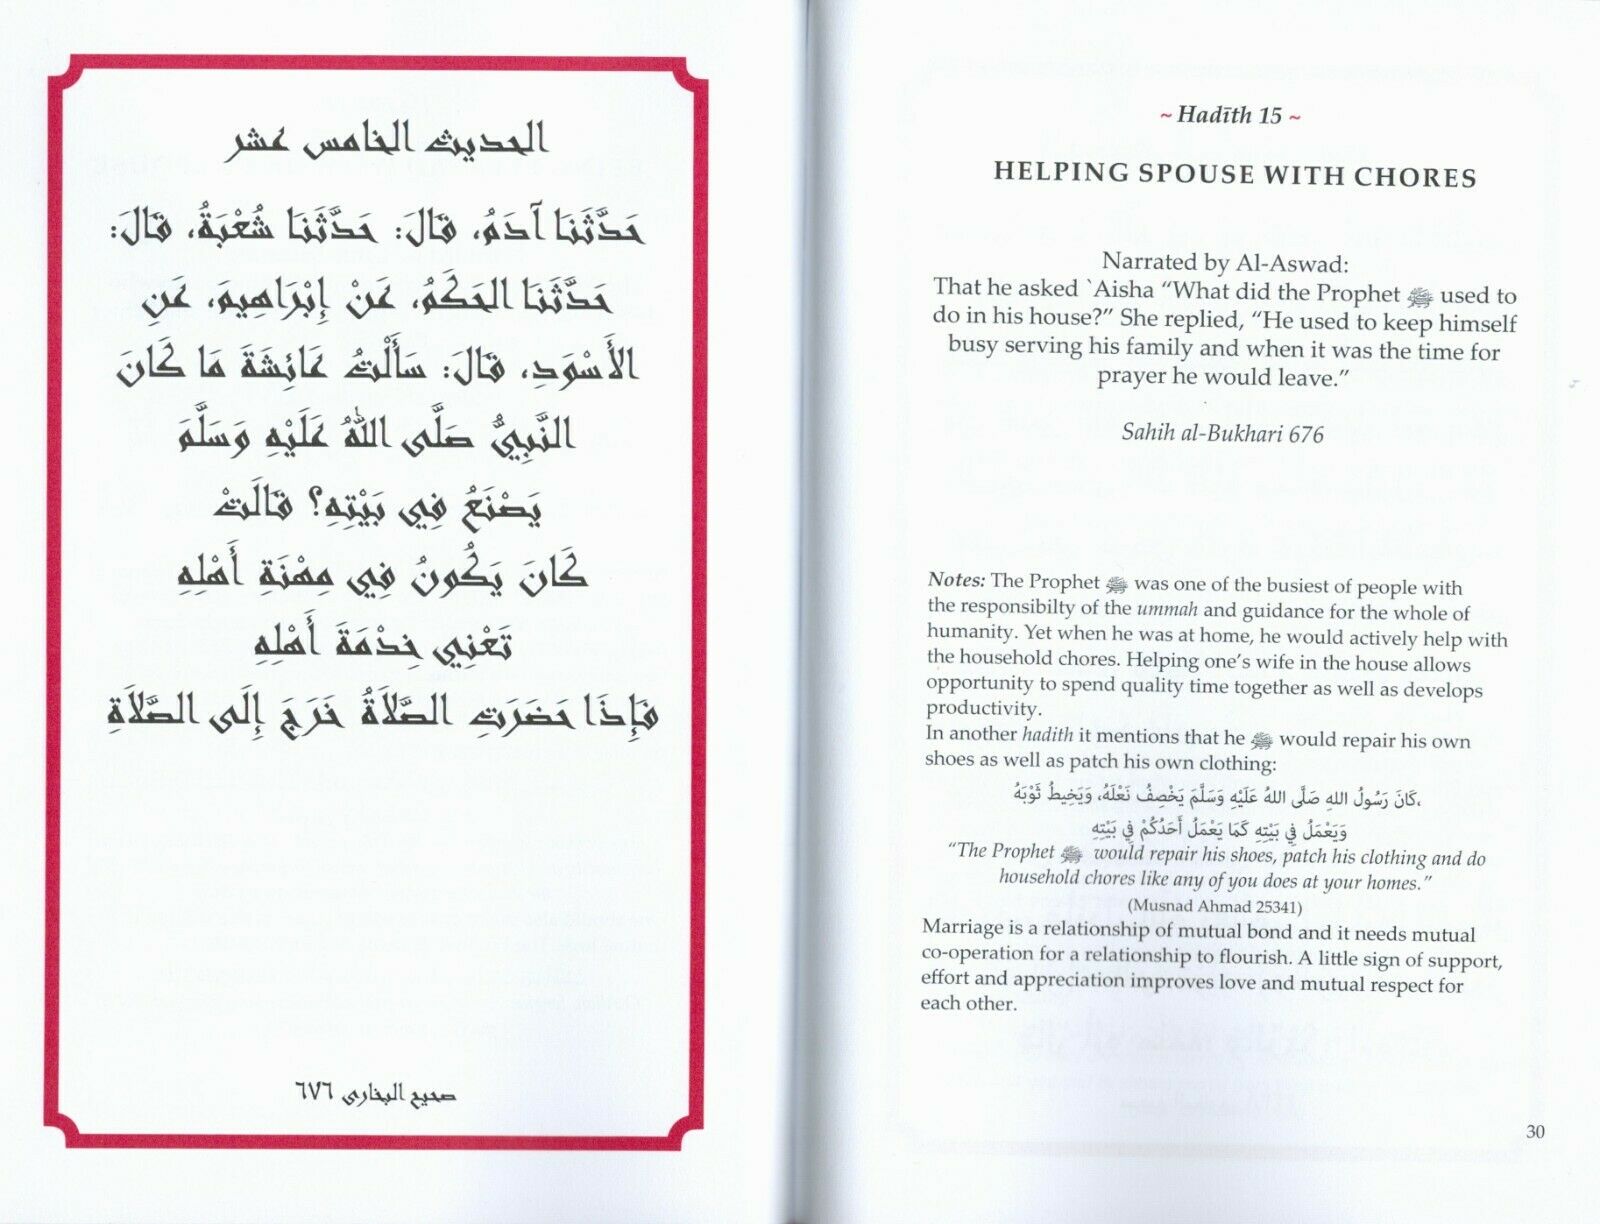 الحديث الخامس عشر
حَدَّثَنَا آدَمُ، قَالَ: حَدَّثَنَا شُعْبَةُ، قَالَ:
حَدَّثَنَا الحَكَمُ، عَنْ إِبْرَاهِيمَ، عَنِ
الأَسْوَدِ، قَالَ: سَأَلْتُ عَائِشَةَ مَا كَانَ
النَّبِيُّ صَلَّى اللهُ عَلَيْهِ وَسَلَّمَ
يَصْنَعُ فِي بَيْتِهِ؟ قَالَتْ
كَانَ يَكُونُ فِي مِهْنَةِ أَهْلِهِ
تَعْنِي خِدْمَةَ أَهْلِهِ
فَإِذَا حَضَرَتِ الصَّلَاةُ خَرَجَ إِلَى الصَّلَاةِ
صحيح البخاري ٦٧٦
~ Hadīth 15 ~
HELPING SPOUSE WITH CHORES
Narrated by Al-Aswad:
That he asked `Aisha “What did the Prophet ﷺ used to
do in his house?” She replied, “He used to keep himself
busy serving his family and when it was the time for
prayer he would leave.”
Sahih al-Bukhari 676
Notes: The Prophet ﷺ was one of the busiest of people with
the responsibilty of the ummah and guidance for the whole of
humanity. Yet when he was at home, he would actively help with
the household chores. Helping one’s wife in the house allows
opportunity to spend quality time together as well as develops
productivity.
In another hadith it mentions that he ﷺ would repair his own
shoes as well as patch his own clothing:
كَانَ رَسُولُ اللهِ صَلَّى اللهُ عَلَيْهِ وَسَلَّمَ يَخْصِفُ نَعْلَهُ، وَيَخِيطُ ثَوْبَهُ،
وَيَعْمَلُ فِي بَيْتِهِ كَمَا يَعْمَلُ أَحَدُكُمْ فِي بَيْتِهِ
“The Prophet ﷺ would repair his shoes, patch his clothing and do
household chores like any of you does at your homes.”
(Musnad Ahmad 25341)
Marriage is a relationship of mutual bond and it needs mutual
co-operation for a relationship to flourish. A little sign of support,
effort and appreciation improves love and mutual respect for
each other.
30